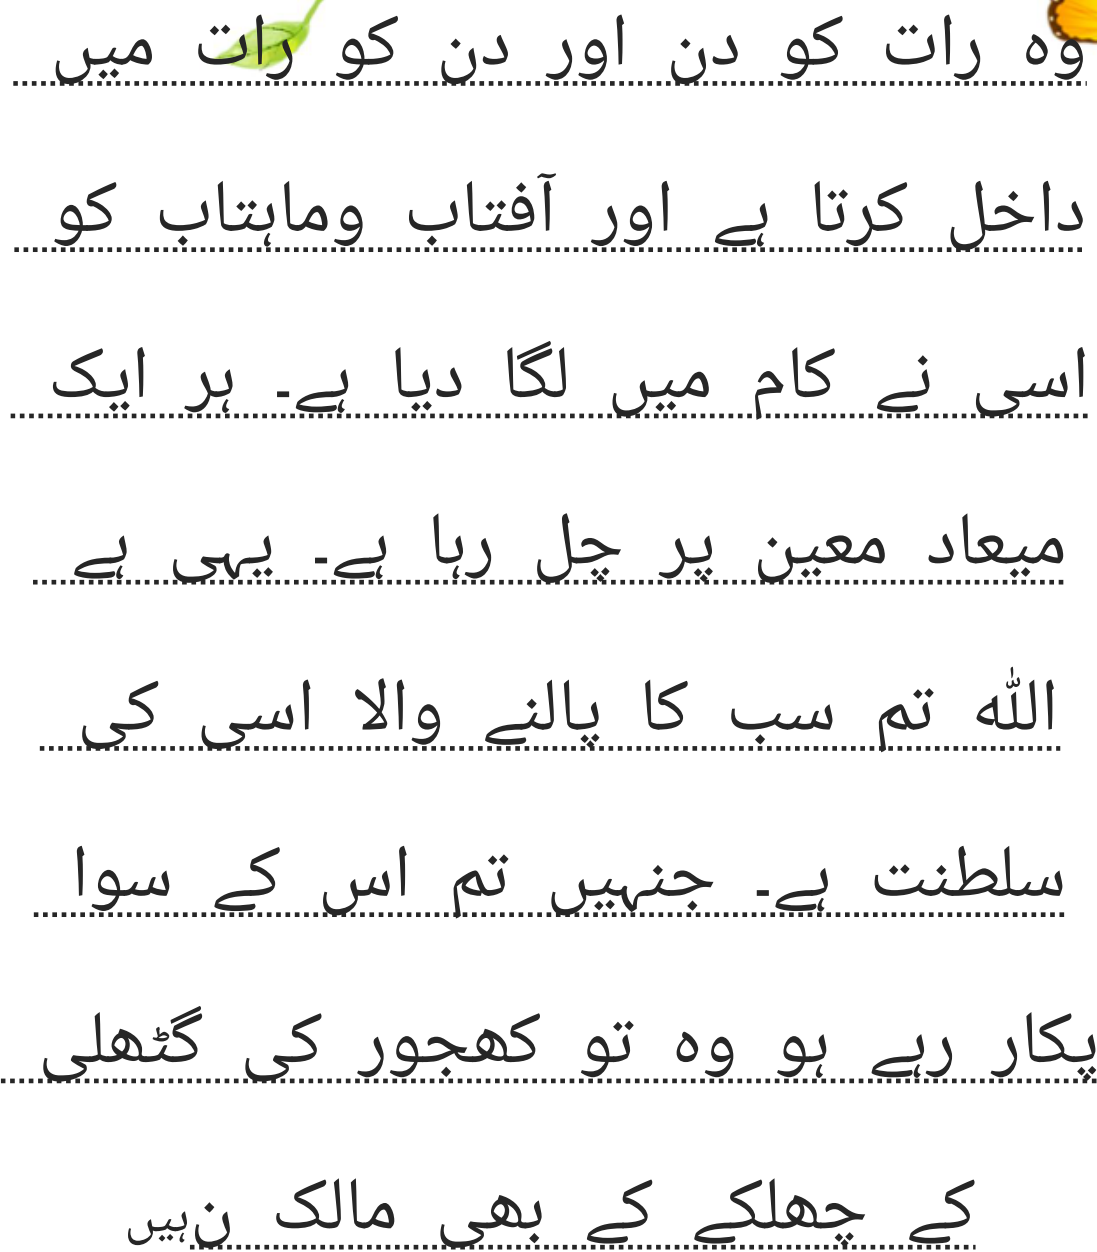 وہ رات کو دن اور دن کو رات میں
داخل کرتا ہے اور آفتاب وماہتاب کو
اسی نے کام میں لگا دیا ہے۔ ہر ایک
میعاد معین پر چل رہا ہے۔ یہی ہے
اللّٰہ تم سب کا پالنے والا اسی کی
سلطنت ہے۔ جنہیں تم اس کے سوا
پکار رہے ہو وہ تو کھجور کی گٹھلی
کے چھلکے کے بھی مالک نہیں